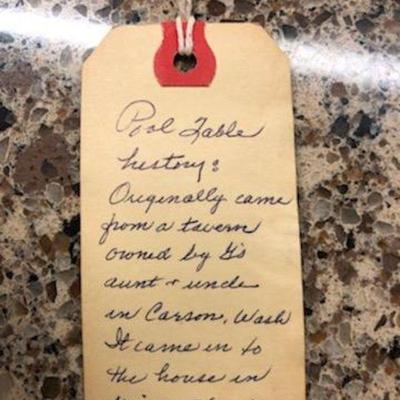 Pool Table
history:
Originally came
from a tavern
owned by G's
aunt + uncle
in Carson, Wash
It came in to
the house in